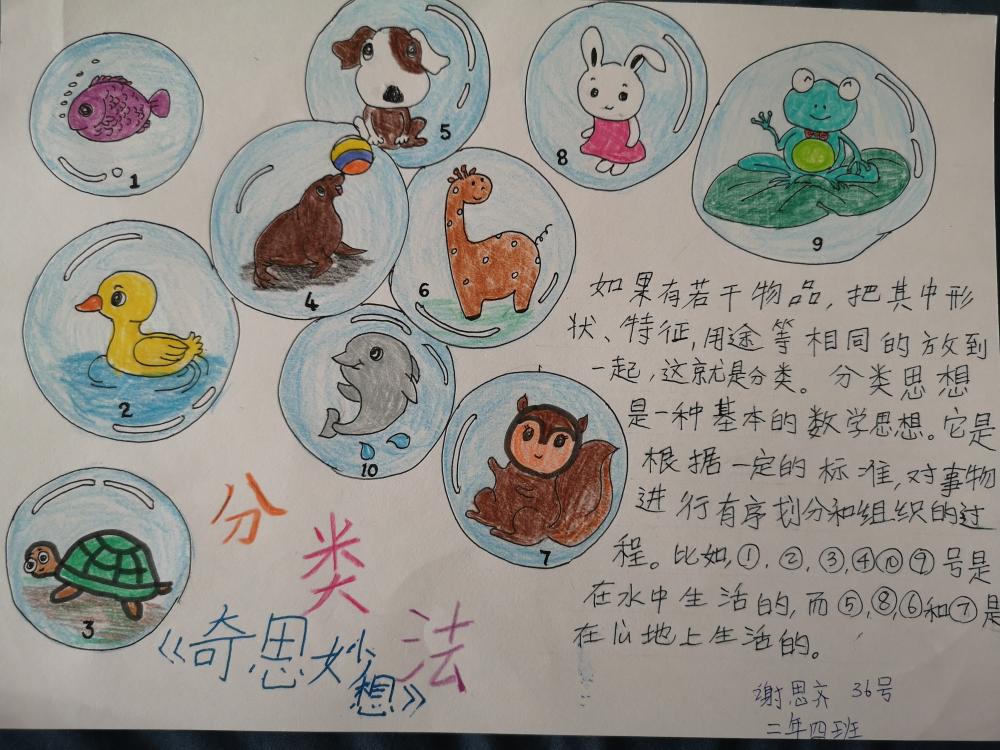 1
5
8
9
4
6
2
10
7
3
如果有若干物品，把其中形
状、特征，用途等相同的放到
一起，这就是分类。分类思想
是一种基本的数学思想。它是
根据一定的标准，对事物
进行有序划分和组织的过
程。比如，①，②，③，④⑩⑨号是
在水中生活的，而⑤，⑧，⑥和⑦是
在地上生活的。
分类法
《奇思妙想》
谢思齐 36号
二年四班